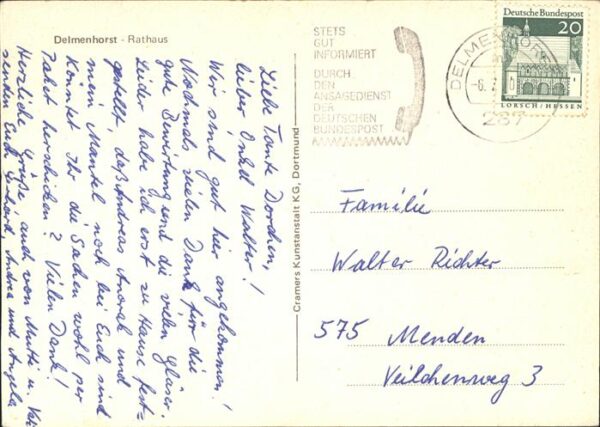 Delmenhorst - Rathaus
Liebe Tante Dorchen,
lieber Onkel Walter!
Wir sind gut hier angekommen!
Nochmals vielen Dank für die
gute Bewirtung und die vielen Gläser.
Leider habe ich erst zu Hause fest=
gestellt, daß Andreas Anorak und
mein Mantel noch bei Euch sind
Könntet Ihr die Sachen wohl per
Paket herschicken? Vielen Dank!
Herzliche Grüße, auch von Mutti u. Vati
senden Euch Andrea und Angela
Cramers Kunstanstalt KG, Dortmund
STETS
GUT
INFORMIERT
DURCH
DEN
ANSAGEDIENST
DER
DEUTSCHEN
BUNDESPOST
DELMENHOR
-6.
287
Deutsche Bundespost
20
LORSCH/HESSEN
Familie
Walter Richter
575 Menden
Veilchenweg 3